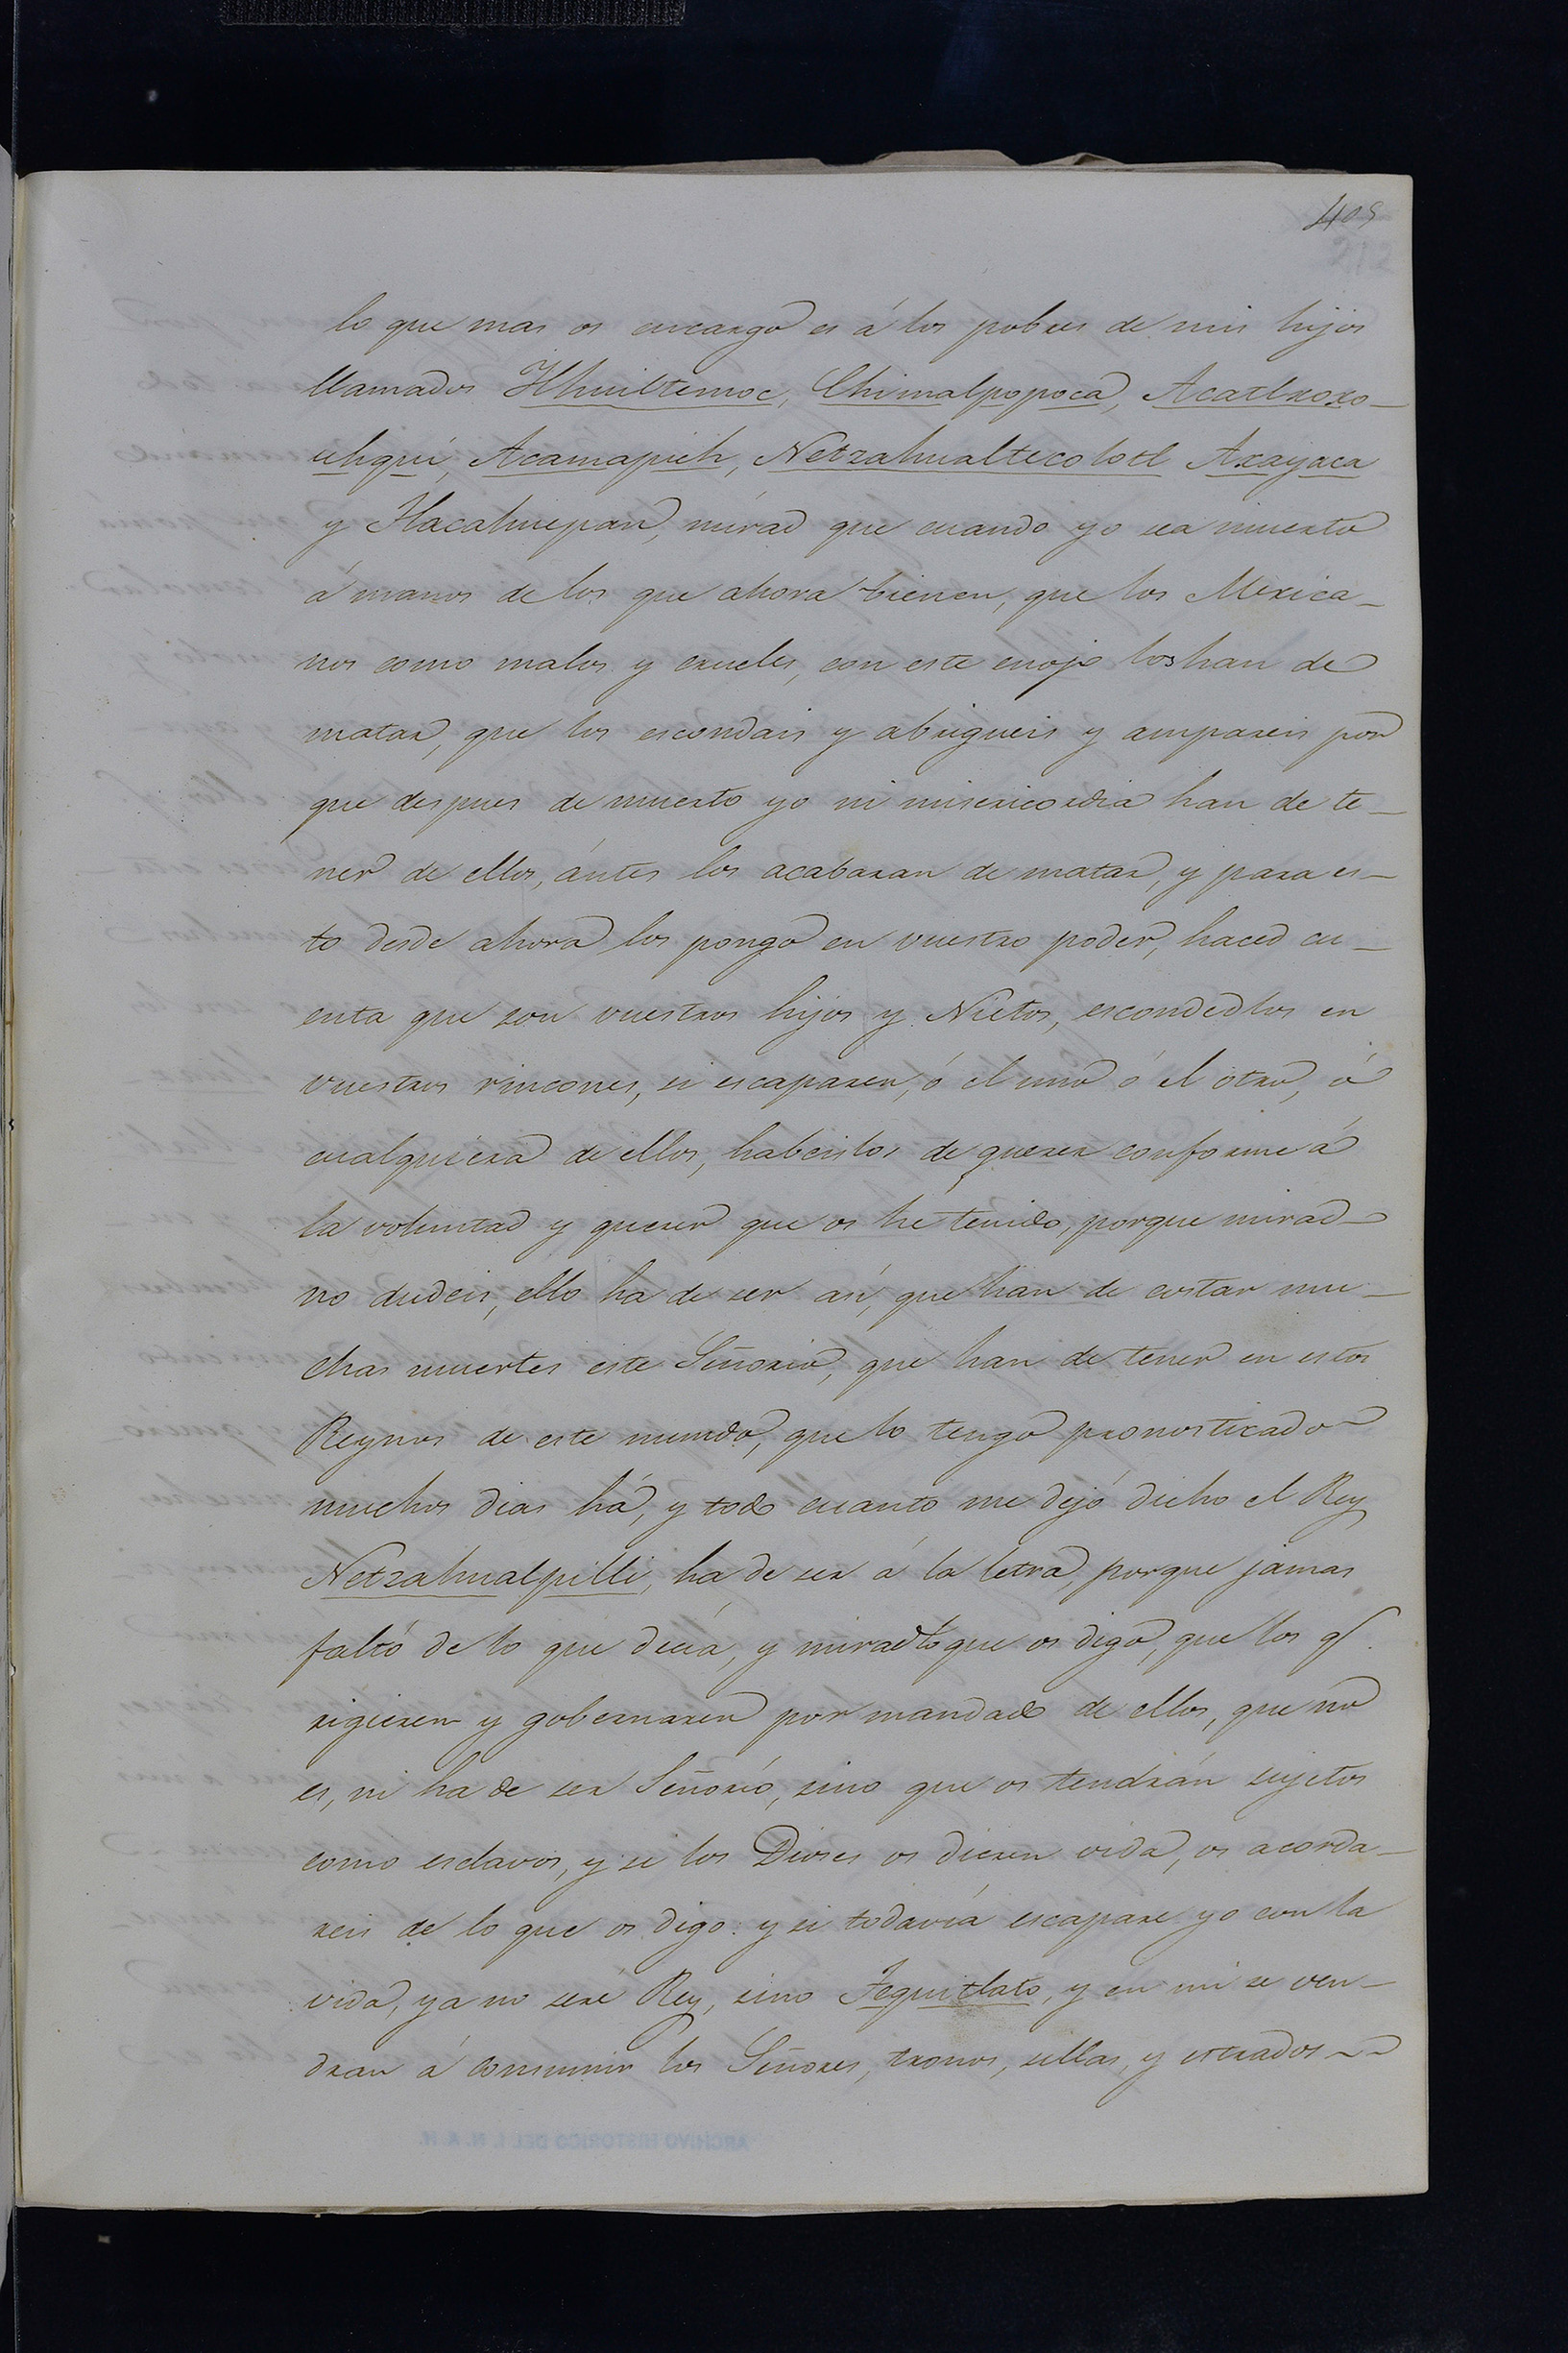 409
212
lo que mas os encargo es á los pobres de mis hijos
llamados Ilhuiltemoc, Chimalpopoca, Acatlxoxo_
uhquí, Acamapich, Netzahualtecolotl Axayaca
y Tlacahuepan, mirad que cuando yo sea muerto
á manos de los que ahora bienen, que los Mexica_
nos como malos y crueles, con este enojo los han de
matar, que los escondais y abrigueis y ampareis por
que despues de muerto yo ni misericordia han de te_
ner de ellos, ántes los acabaran de matar, y para es_
to desde ahora los pongo en vuestro poder, haced cu_
enta que son vuestros hijos y Nietos, escondedlos en
vuestros rincones, si escaparen, ó el uno ó el otro, ó
cualquiera de ellos, habeislos de querer conforme á
la voluntad y querer que os he tenido, porque mirad
no dudeis, ello ha de ser así, que han de costar mu_
chas muertes este Señorio, que han de tener en estos
Reynos de este mundo, que lo tengo pronosticado
muchos dias há, y todo cuanto me dejó dicho el Rey
Netzahualpilli, ha de ser á la letra, porque jamas
faltó de lo que decía, y mirad lo que os digo, que los q.
rigieren y gobernaren por mandado de ellos, que no
es, ni ha de ser Señorío, sino que os tendrán sujetos
como esclavos, y si los Dioses os dieren vida, os acorda_
reis de lo que os digo: y si todavía escapare yo con la
vida, ya no seré Rey, sino Tequitlato, y en mi se ven_
dran á consumir los Señores, tronos, sillas, y estrados
ARCHIVO HISTORICO DEL I. N. A. H.